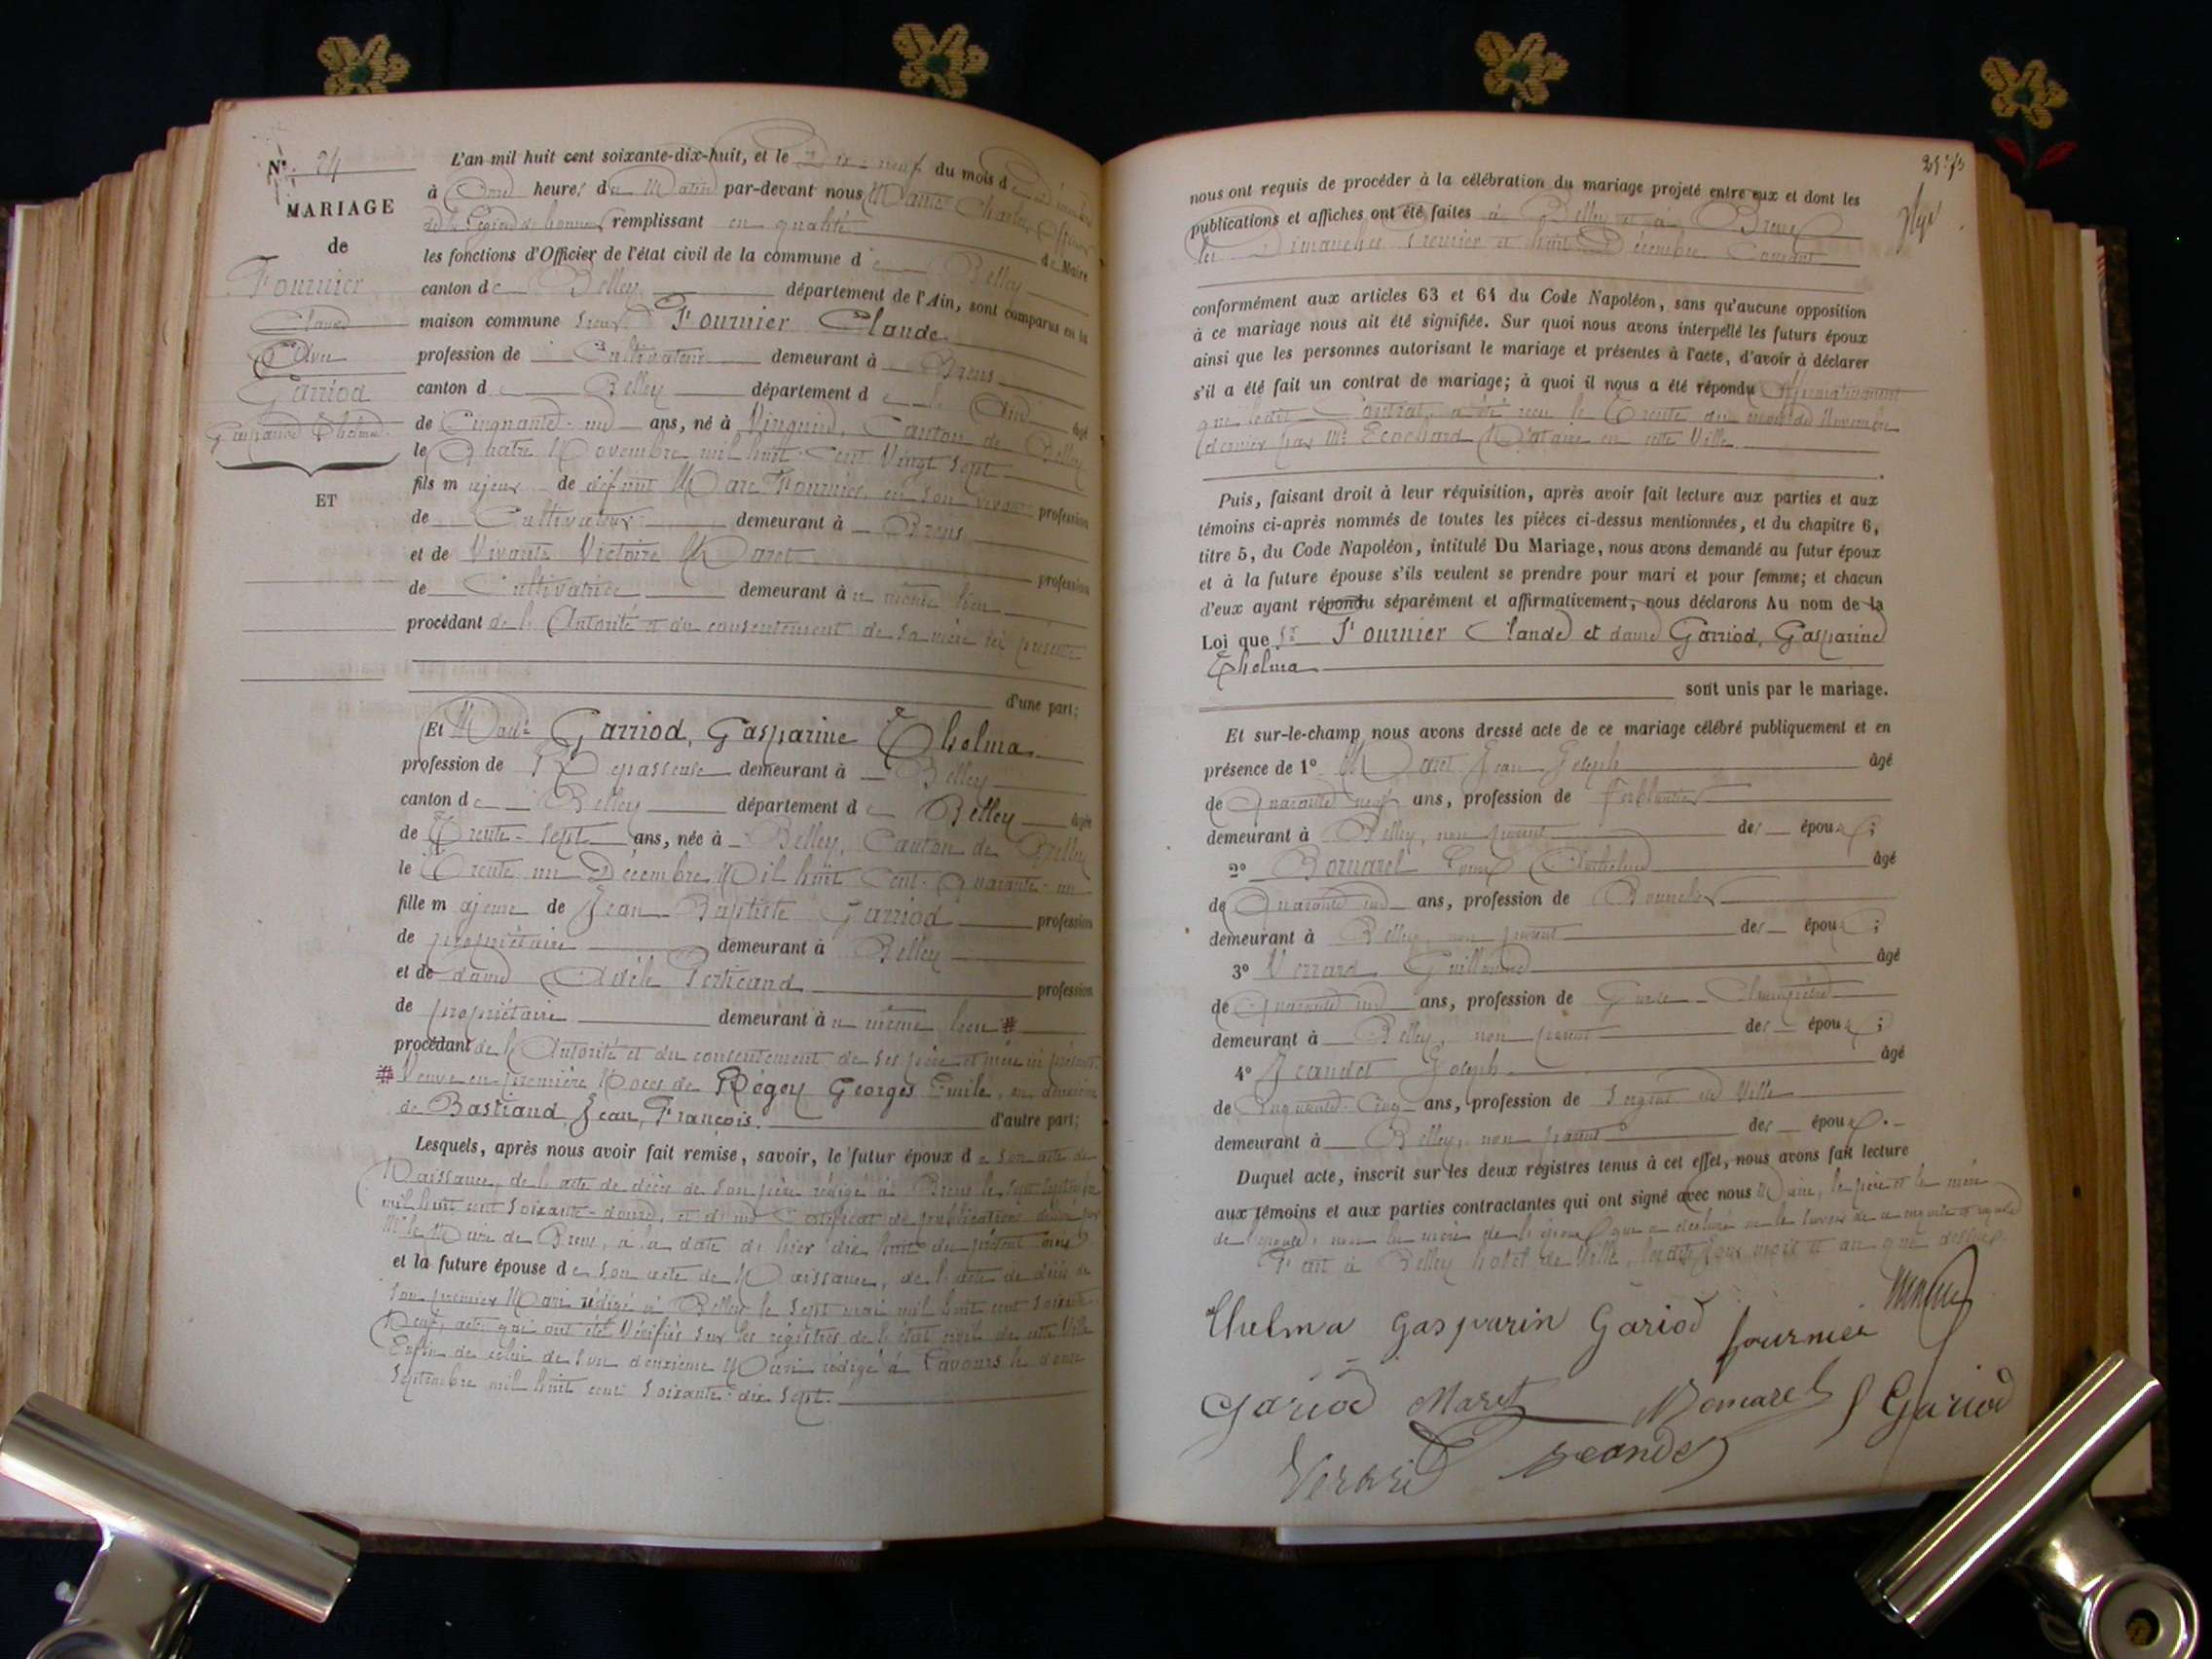 N° 24
MARIAGE
de
Fournier
Claude
Avec
Garriod
Gasparine Thelma
ET
L'an mil huit cent soixante-dix-huit, et le Dix-neuf du mois de Décembre
à Onze heures du Matin par-devant nous Maire Charles
de la Légion d'honneur remplissant en qualité de Maire
les fonctions d'Officier de l'état civil de la commune de Belley
canton de Belley département de l'Ain, sont comparus en la
maison commune sieur Fournier Claude
profession de Cultivateur demeurant à Brens
canton de Belley département de l'Ain âgé
de Cinquante-un ans, né à Virignin, Canton de Belley
le Quatre Novembre mil huit-Cent Vingt sept
fils majeur de défunt Marc Fournier, en son vivant profession
de Cultivateur demeurant à Brens
et de Vivante Victoire Maret profession
de Cultivatrice demeurant à u même lieu
procédant de l'Autorité et du consentement de sa mère ici présente
d'une part;
Et Made Garriod, Gasparine Thelma
profession de Repasseuse demeurant à Belley
canton de Belley département de Belley âgée
de Trente-sept ans, née à Belley, Canton de Belley
le Trente un Décembre Mil huit Cent-Quarante-un
fille majeure de Jean Baptiste Garriod profession
de propriétaire demeurant à Belley
et de dame Adèle Perticand profession
de propriétaire demeurant à u même lieu #
procédant de l'Autorité et du consentement de ses père et mère ici présents
# Veuve en première Noces de Régey Georges Emile, en deuxième
de Bastiand, Jean, François. d'autre part;
Lesquels, après nous avoir fait remise, savoir, le futur époux de son acte de
Naissance, de l'acte de décès de son père rédigé à Brens le sept Septembre
mil huit cent soixante-douze, et d'un Certificat de publication délivré par
Mr le Maire de Brens, à la date de hier dix huit du présent mois
et la future épouse de son acte de Naissance, de l'acte de décès de
son premier Mari rédigé à Belley le sept mai mil huit cent soixante
Neuf, actes qui ont été Vérifiés sur les régistres de l'état civil de cette Ville
Enfin de celui de son deuxième Mari rédigé à Lavours le douze
Septembre mil huit cent soixante-dix sept.
nous ont requis de procéder à la célébration du mariage projeté entre eux et dont les
publications et affiches ont été faites à Belley et à Brens
les Dimanches Premier et huit Décembre Courant
conformément aux articles 63 et 64 du Code Napoléon, sans qu'aucune opposition
à ce mariage nous ait été signifiée. Sur quoi nous avons interpellé les futurs époux
ainsi que les personnes autorisant le mariage et présentes à l'acte, d'avoir à déclarer
s'il a été fait un contrat de mariage; à quoi il nous a été répondu Affirmativement
que ledit Contrat, a été reçu le Trente du mois de Novembre
dernier par Me Ecochard Notaire en cette Ville
Puis, faisant droit à leur réquisition, après avoir fait lecture aux parties et aux
témoins ci-après nommés de toutes les pièces ci-dessus mentionnées, et du chapitre 6,
titre 5, du Code Napoléon, intitulé Du Mariage, nous avons demandé au futur époux
et à la future épouse s'ils veulent se prendre pour mari et pour femme; et chacun
d'eux ayant répondu séparément et affirmativement, nous déclarons Au nom de la
Loi que Sr Fournier Claude et dame Garriod, Gasparine
Thelma
sont unis par le mariage.
Et sur-le-champ nous avons dressé acte de ce mariage célébré publiquement et en
présence de 1° Maret Jean Joseph âgé
de Quarante neuf ans, profession de Ferblantier
demeurant à Belley, non parent des époux;
2° Bonnarel Anthelme âgé
de Quarante un ans, profession de
demeurant à Belley, non parent des époux;
3° Verrard Guillaume âgé
de Quarante un ans, profession de Garde-Champêtre
demeurant à Belley, non parent des époux;
4° Jeandet Joseph âgé
de Cinquante-Cinq ans, profession de Sergent de Ville
demeurant à Belley, non parent des époux.
Duquel acte, inscrit sur les deux régistres tenus à cet effet, nous avons fait lecture
aux témoins et aux parties contractantes qui ont signé avec nous Maire, le père et la mère
de l'épouse, non la mère de l'époux que a déclaré ne le savoir de ce enquise et requise
Fait à Belley hotel de Ville, lesdits jour mois et an que dessus.
thelma gasparin gariod fournier
gariod Maret Bonnarel f Gariod
Verard Jeandet